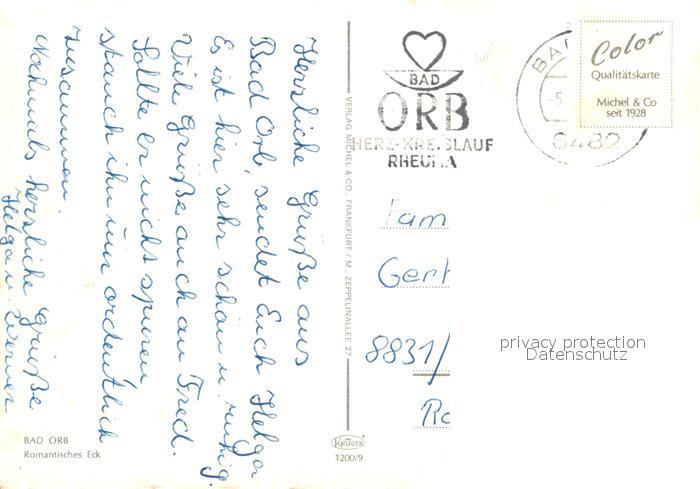 Herzliche Grüße aus
Bad Orb, sendet Euch Helga
Es ist hier sehr schön u. ruhig.
Viele Grüße auch an Fred.
Sollte er nicht spuren,
stauch ihn nur ordentlich
zusammen.
Nochmals herzliche Grüße
Helga u. Werner
BAD ORB
Romantisches Eck
VERLAG MICHEL & CO., FRANKFURT / M., ZEPPELINALLEE 27
KRÜGER
1200/9
BAD
ORB
HERZ-KREISLAUF
RHEUMA
BA
-5
6482
Color
Qualitätskarte
Michel & Co
seit 1928
Fam
Gert
8831/
privacy protection
Datenschutz